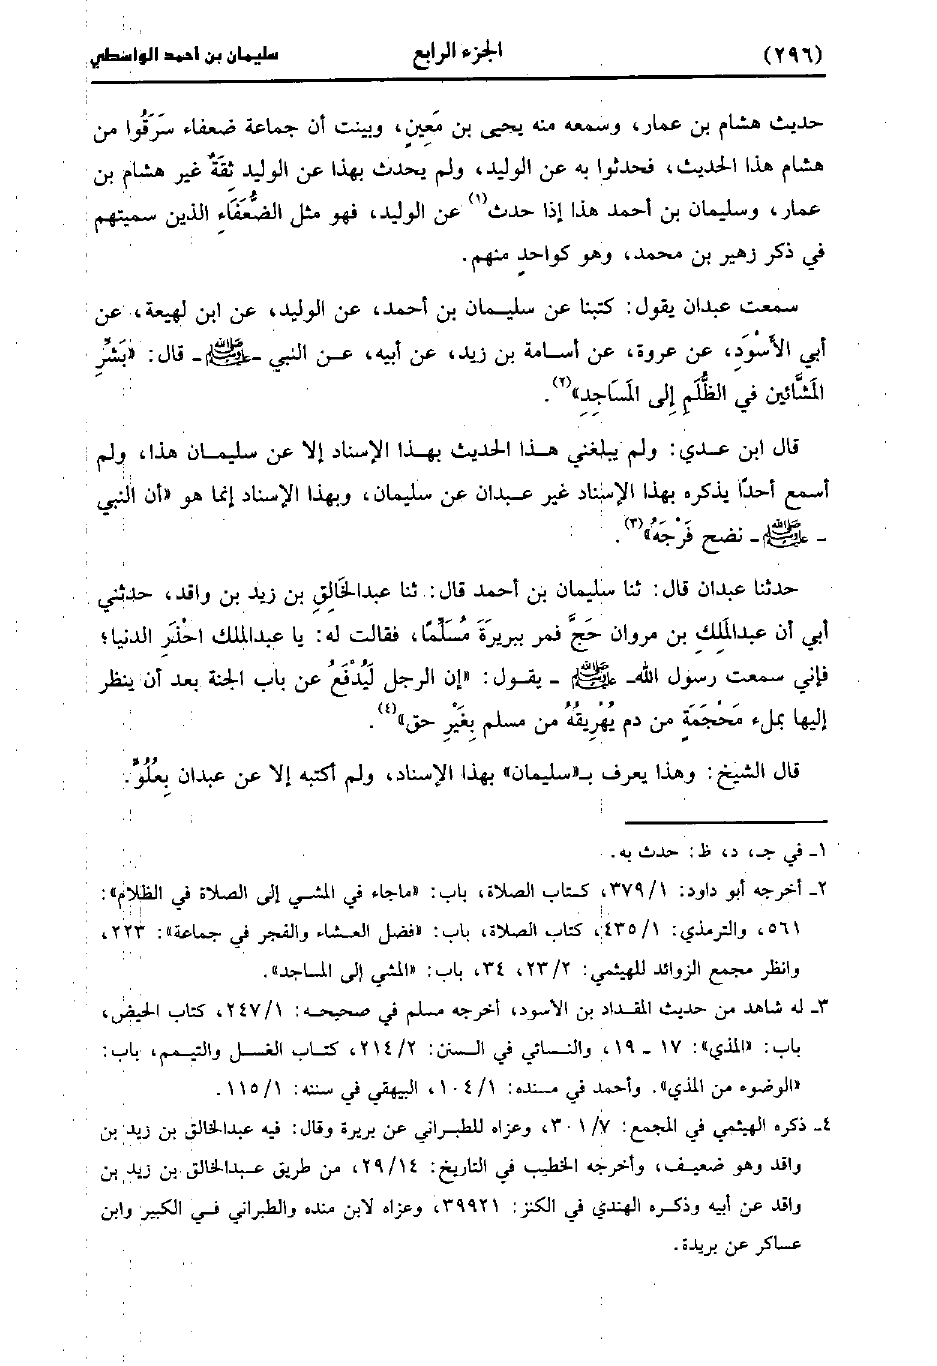 (٢٩٦) الجزء الرابع سليمان بن أحمد الواسطي
حديث هشام بن عمار، وسمعه منه يحيى بن مَعِينٍ، وبينت أن جماعة ضعفاء سَرَقُوا من
هشام هذا الحديث، فحدثوا به عن الوليد، ولم يحدث بهذا عن الوليد ثِقَةٌ غير هشام بن
عمار، وسليمان بن أحمد هذا إذا حدث(١) عن الوليد، فهو مثل الضُّعَفَاءِ الذين سميتهم
في ذكر زهير بن محمد، وهو كواحدٍ منهم.
سمعت عبدان يقول: كتبنا عن سليمان بن أحمد، عن الوليد، عن ابن لهيعة، عن
أبي الأسْوَدِ، عن عروة، عن أسامة بن زيد، عن أبيه، عن النبي -ﷺ- قال: «بَشِّرِ
المَشَّائين في الظُّلَمِ إلى المَسَاجِدِ»(٢).
قال ابن عدي: ولم يبلغني هذا الحديث بهذا الإسناد إلا عن سليمان هذا، ولم
أسمع أحدًا يذكره بهذا الإسناد غير عبدان عن سليمان، وبهذا الإسناد إنما هو «أن النبي
- ﷺ- نضح فَرْجَهُ»(٣).
حدثنا عبدان قال: ثنا سليمان بن أحمد قال: ثنا عبدالخَالِقِ بن زيد بن واقد، حدثني
أبي أن عبدالمَلِكِ بن مروان حَجَّ فمر ببريرَةَ مُسَلِّمًا، فقالت له: يا عبدالملك احْذَرِ الدنيا؛
فإني سمعت رسول الله- ﷺ - يقول: «إن الرجل لَيُدْفَعُ عن باب الجنة بعد أن ينظر
إليها بملء مَحْجَمَةٍ من دم يُهْرِيقُهُ من مسلم بِغَيْرِ حق»(٤).
قال الشيخ: وهذا يعرف بـ«سليمان» بهذا الإسناد، ولم أكتبه إلا عن عبدان بِعُلُوٍّ.
١- في جـ، د، ظ: حدث به.
٢- أخرجه أبو داود: ٣٧٩/١، كتاب الصلاة، باب: «ماجاء في المشي إلى الصلاة في الظلام»:
٥٦١، والترمذي: ٤٣٥/١، كتاب الصلاة، باب: «فضل العشاء والفجر في جماعة»: ٢٢٣،
وانظر مجمع الزوائد للهيثمي: ٢٣/٢، ٣٤، باب: «المشي إلى المساجد».
٣- له شاهد من حديث المقداد بن الأسود، أخرجه مسلم في صحيحه: ٢٤٧/١، كتاب الحيض،
باب: «المذي»: ١٧ - ١٩، والنسائي في السنن: ٢١٤/٢، كتاب الغسل والتيمم، باب:
«الوضوء من المذي». وأحمد في مسنده: ١٠٤/١، البيهقي في سننه: ١١٥/١.
٤- ذكره الهيثمي في المجمع: ٣٠١/٧، وعزاه للطبراني عن بريرة وقال: فيه عبدالخالق بن زيد بن
واقد وهو ضعيف، وأخرجه الخطيب في التاريخ: ٢٩/١٤، من طريق عبدالخالق بن زيد بن
واقد عن أبيه وذكره الهندي في الكنز: ٣٩٩٢١، وعزاه لابن منده والطبراني في الكبير وابن
عساكر عن بريدة.